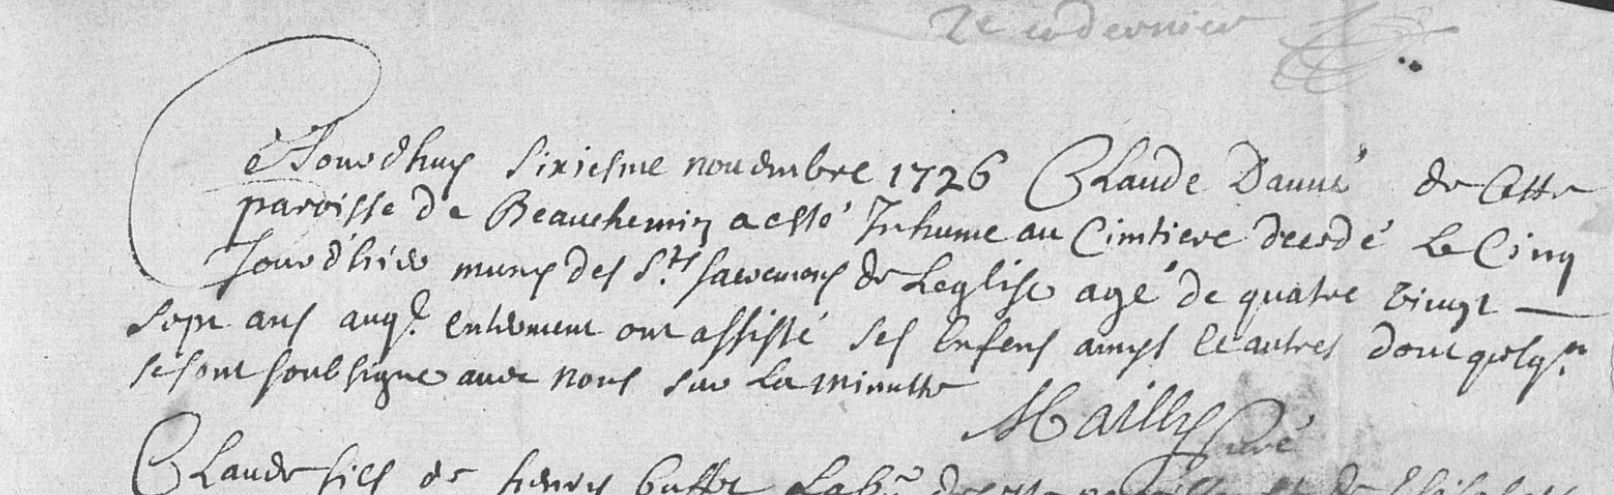 2e et dernier
Ce Jourdhuy Sixiesme nouembre 1726 Claude Dauué de Cette
paroisse de Beauchemin a esté Inhume au Cimtiere decedé Le Cinq
Jour d'hier munys des Sts sacremens de Leglise agé de quatre vingt
sept ans auql enterement ont assisté ses Enfens amys et autres dont qlqs
se sont soubsigne auec nous sur La minutte
Mailly curé
Claude fils de henry buffet